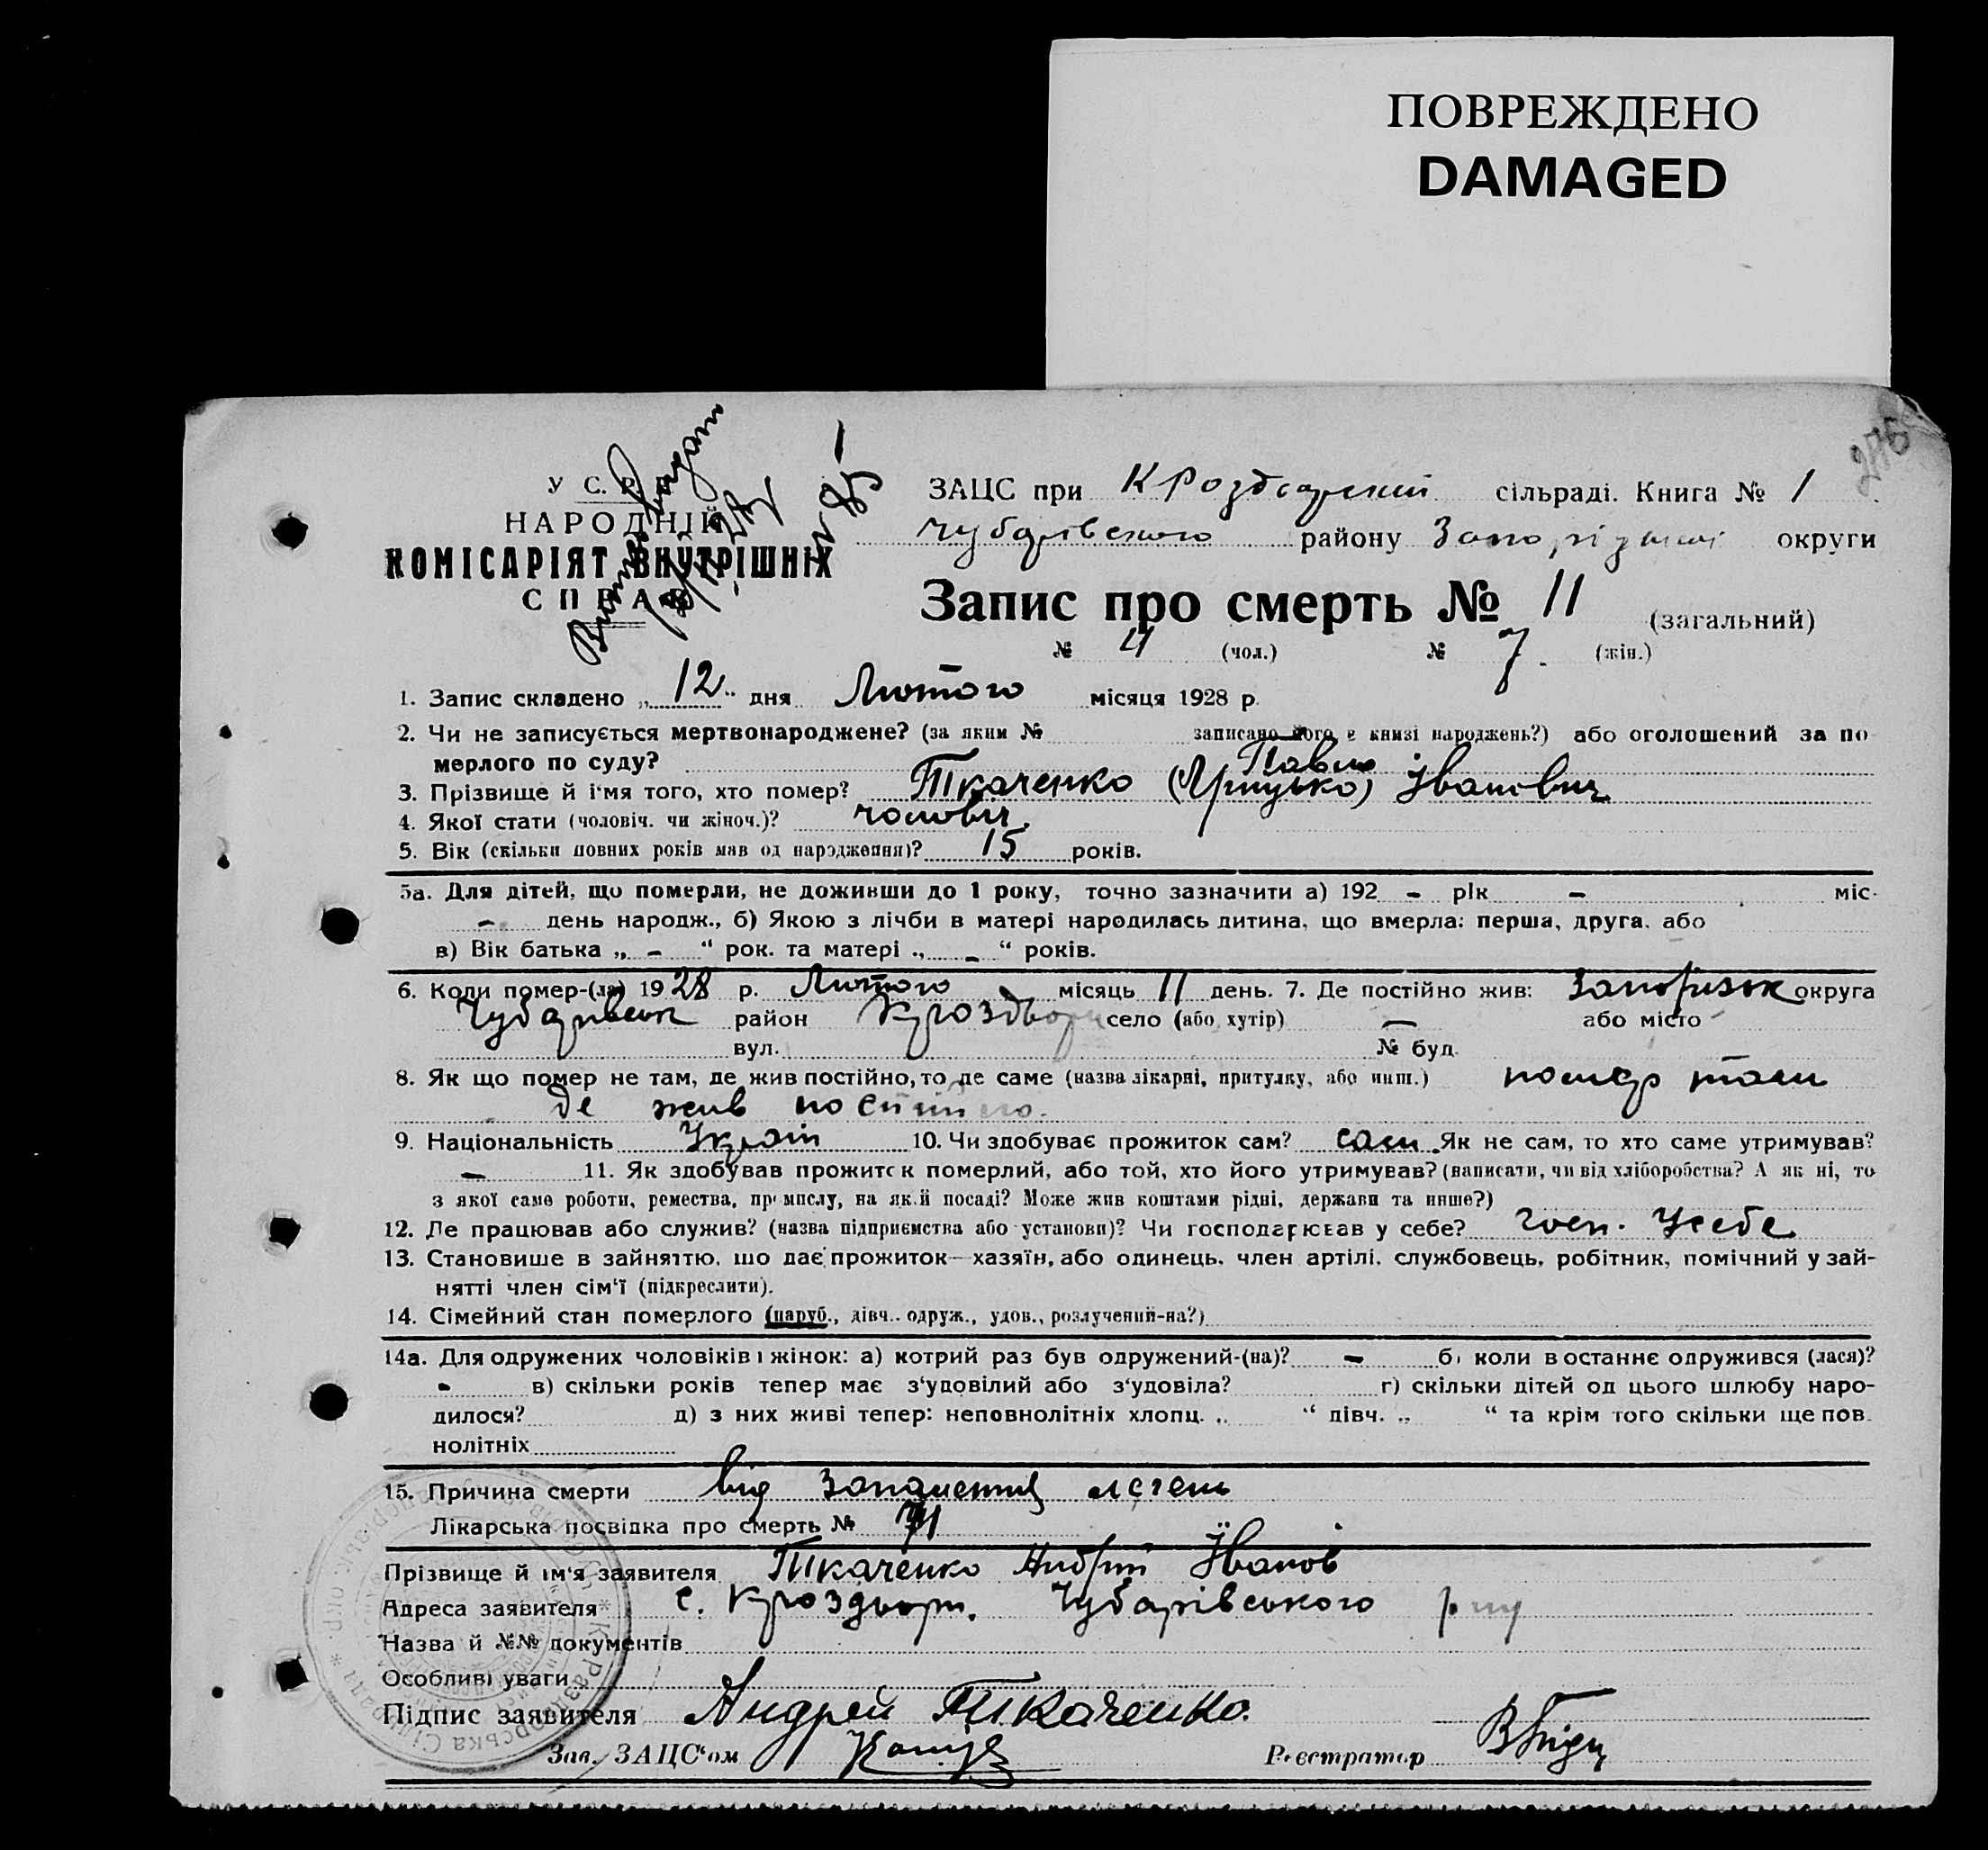 ПОВРЕЖДЕНО
DAMAGED
275
У С. Р. Р.
НАРОДНІЙ
КОМІСАРІЯТ ВНУТРІШНІХ
СПРАВ
ЗАЦС при К Роздорский сільраді. Книга № 1
Чубарівського району Запорізької округи
Запис про смерть № 11 (загальний)
№ 4 (чол.) № 7. (жін.)
1. Запис складено „ 12 “ дня Лютого місяця 1928 р.
2. Чи не записується мертвонароджене? (за яким № записано його в книзі народжень?) або оголошений за по
мерлого по суду?
Павло
3. Прізвище й і'мя того, хто помер? Ткаченко (Грицько) Іванович
4. Якої стати (чоловіч. чи жіноч.)? чоловіч.
5. Вік (скільки повних років мав од народження)? 15 років.
5а. Для дітей, що померли, не доживши до 1 року, точно зазначити а) 192 - рік - міс-
- день народж., б) Якою з лічби в матері народилась дитина, що вмерла: перша, друга, або
в) Вік батька „ - “ рок. та матері „ - “ років.
6. Коли помер-(ла) 1928 р. Лютого місяць 11 день. 7. Де постійно жив: Запоризьк округа
Чубарівськ район Кроздори село (або хутір) — або місто -
вул. № буд.
8. Як що помер не там, де жив постійно, то де саме (назва лікарні, притулку, або инш.) помер там
де жив постійно.
9. Національність Україн 10. Чи здобуває прожиток сам? сам. Як не сам, то хто саме утримував?
- 11. Як здобував прожиток померлий, або той, хто його утримував? (написати, чи від хліборобства? А як ні, то
з якої саме роботи, ремества, промислу, на якій посаді? Може жив коштами рідні, держави та инше?)
12. Де працював або служив? (назва підприємства або установи)? Чи господарював у себе? госп. Усебе
13. Становище в зайняттю, що дає прожиток—хазяїн, або одинець, член артілі, службовець, робітник, помічний у зай-
нятті член сім'ї (підкреслити).
14. Сімейний стан померлого (паруб., дівч.. одруж., удов., розлучений-на?)
14а. Для одружених чоловіків і жінок: а) котрий раз був одружений-(на)? - б) коли востаннє одружився (лася)?
- в) скільки років тепер має з'удовілий або з'удовіла? г) скільки дітей од цього шлюбу наро-
дилося? д) з них живі тепер: неповнолітніх хлопц. „ “ дівч. „ “ та крім того скільки ще пов-
нолітніх
15. Причина смерти від запаленния легень
Лікарська посвідка про смерть №
Прізвище й ім'я заявителя Ткаченко Андрій Іванов
Адреса заявителя с. Кроздори. Чубарівського р-ну
Назва й №№ документів
Особливі уваги
Підпис заявителя Андрей Ткаченко.
Зав. ЗАЦС'ом Реєстратор